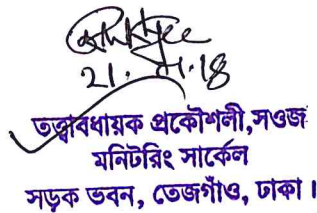 21.
.18
তত্ত্বাবধায়ক প্রকৌশলী,সওজ
মনিটরিং সার্কেল
সড়ক ভবন, তেজগাঁও, ঢাকা।